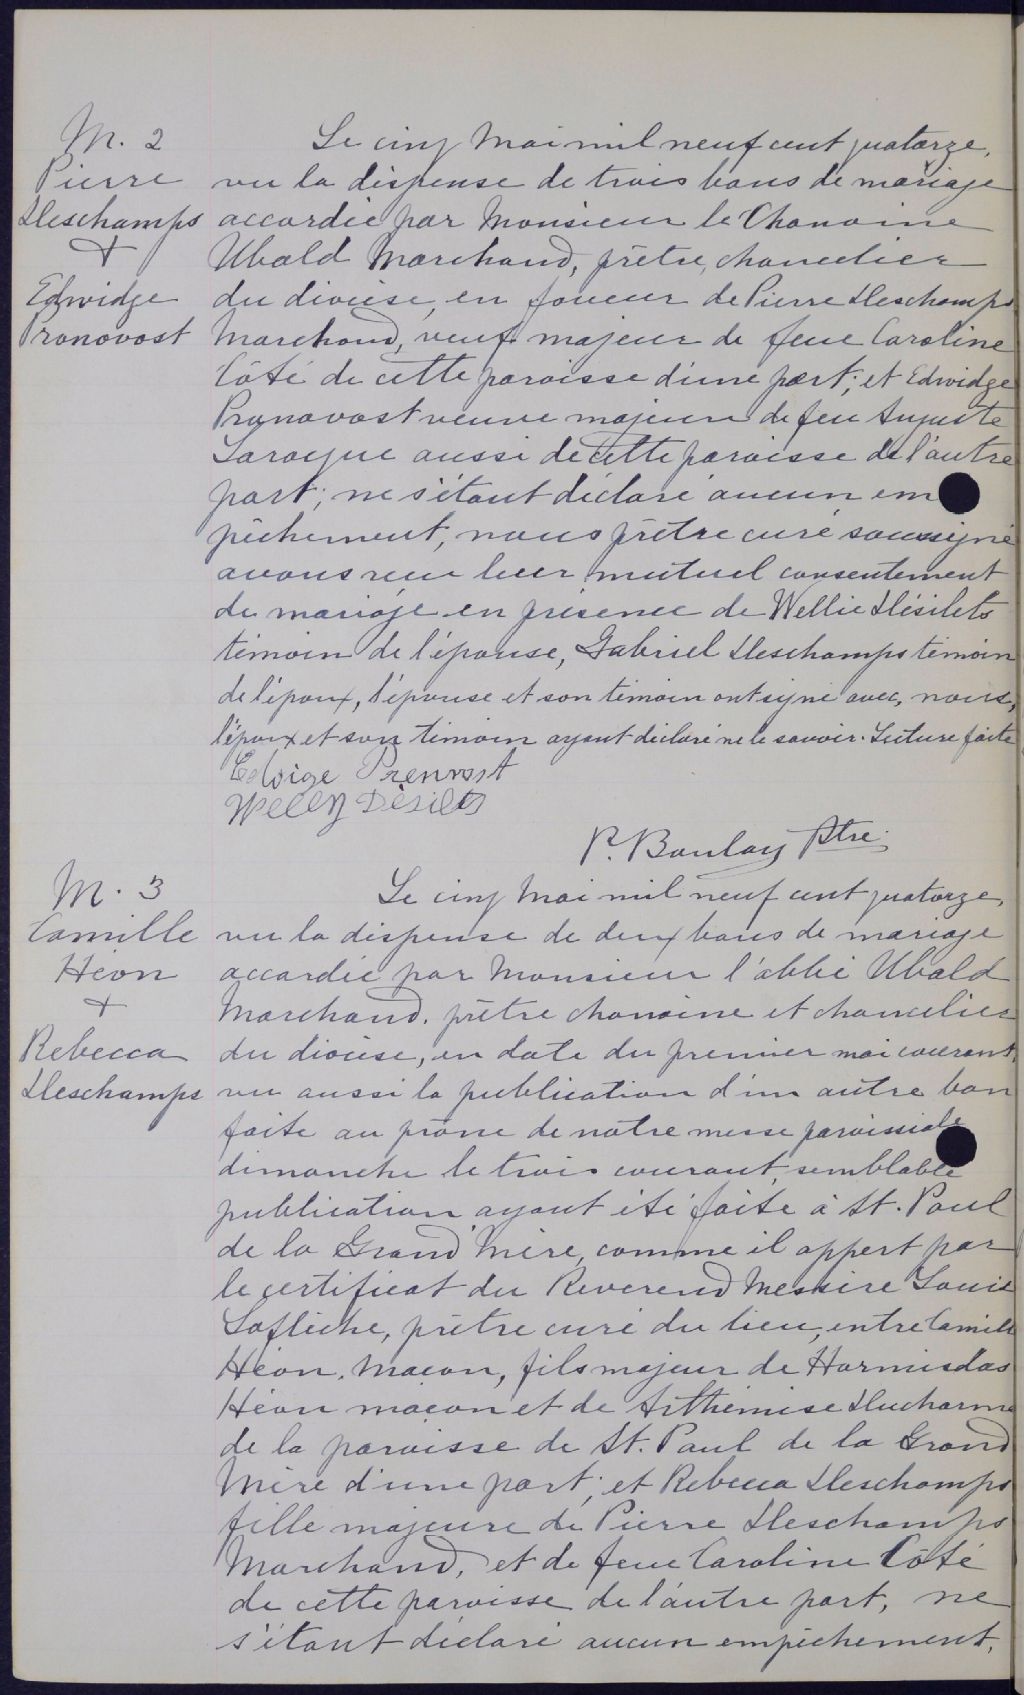 M. 2
Pierre
Deschamps
+
Edwidge
Pronovost
Le cinq Mai mil neuf cent quatorze,
vu la dispense de trois bans de mariage
accordée par Monsieur le Chanoine
Ubald Marchand, prêtre, chancelier
du diocèse, en faveur de Pierre Deschamps
Marchand, veuf majeur de feue Caroline
Côté de cette paroisse d'une part; et Edwidge
Pronovost veuve majeure de feu Auguste
Larocque aussi de cette paroisse de l'autre
part; ne s'étant déclaré aucun em
pêchement, nous prêtre curé soussigné
avons reçu leur mutuel consentement
de mariage en présence de Wellie Désilets
témoin de l'épouse, Gabriel Deschamps témoin
de l'époux, l'épouse et son témoin ont signé avec nous,
l'époux et son témoin ayant déclaré ne le savoir. Lecture faite
Edvige Prenovost
Welly Désilets
P. Boulay Ptre.
M. 3
Camille
Héon
+
Rebecca
Deschamps
Le cinq Mai mil neuf cent quatorze,
vu la dispense de deux bans de mariage
accordée par Monsieur l'abbé Ubald
Marchand, prêtre chanoine et chancelier
du diocèse, en date du premier mai courant,
vu aussi la publication d'un autre ban
faite au prône de notre messe paroissiale
dimanche le trois courant, semblable
publication ayant été faite à St. Paul
de la Grand'Mère, comme il appert par
le certificat du Reverend Messire Louis
Laflèche, prêtre curé du lieu, entre Camille
Héon, maçon, fils majeur de Hormisdas
Héon maçon et de Arthémise Ducharme
de la paroisse de St. Paul de la Grand
Mère d'une part; et Rebecca Deschamps
fille majeure de Pierre Deschamps
Marchand, et de feue Caroline Côté
de cette paroisse de l'autre part, ne
s'étant déclaré aucun empêchement,